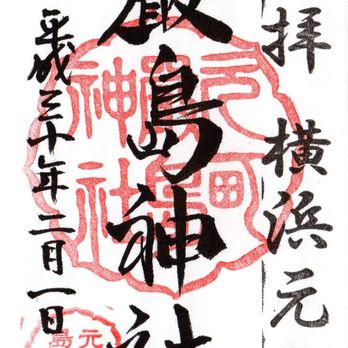 拝 横浜元
厳島神社
平成三十年二月一日
元町
厳島
神社
元
島